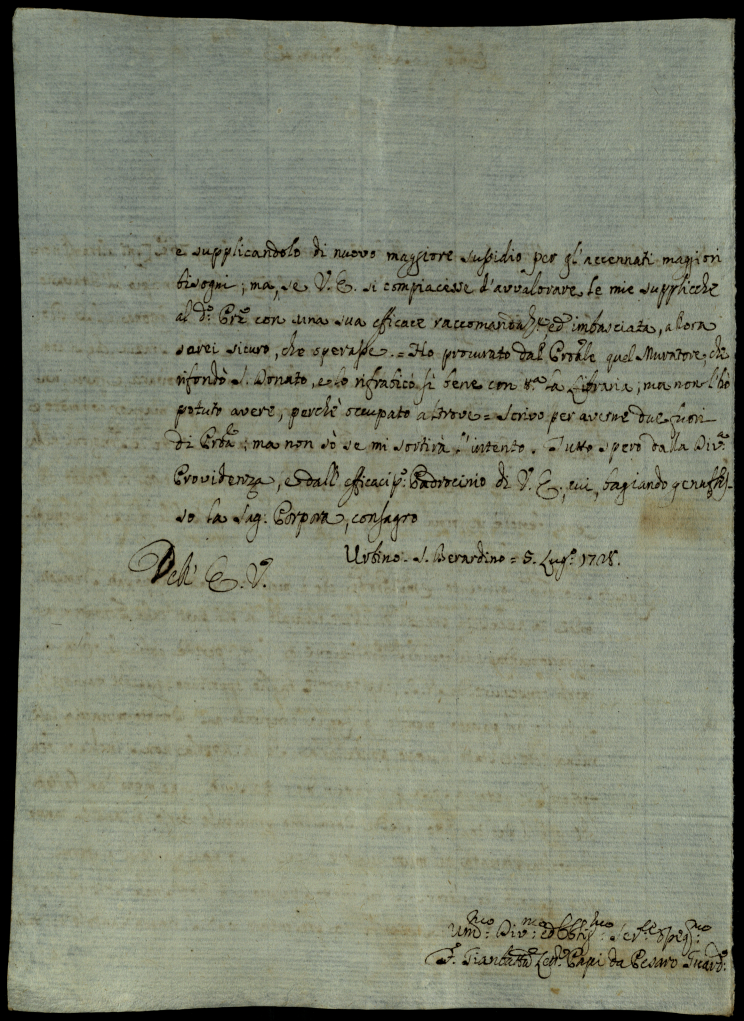 e supplicandolo di nuovo maggiore sussidio per gl'accennati maggiori
bisogni; ma, se V. E. si compiacesse d'avvalorare le mie suppliche
al d.º Pre con una sua efficace raccomandaz.ne ed imbasciata, allora
sarei sicuro, che sperasse. = Ho procurato dal quel Muratore, che
rifondò S. Donato, e lo rifrabicò sì bene con la Libraria; ma non l'hò
potuto avere, perchè occupato altrove = scrivo per averne due fuori
di ; ma non sò se mi sortirà l'intento. Tutto spero dalla Div.ª
Providenza, e dall' efficacis.º Padrocinio di V.ª E., cui, bagiando genufles-
so la Sag. Porpora, consagro
Urbino. S. Berardino = 5. Lug.º 1728.
Dell' E. V.ª
Um.mo Div.mo ed Obblig.mo Ser.e
F. Gianbatt.a Papi da Pesaro Guard.º